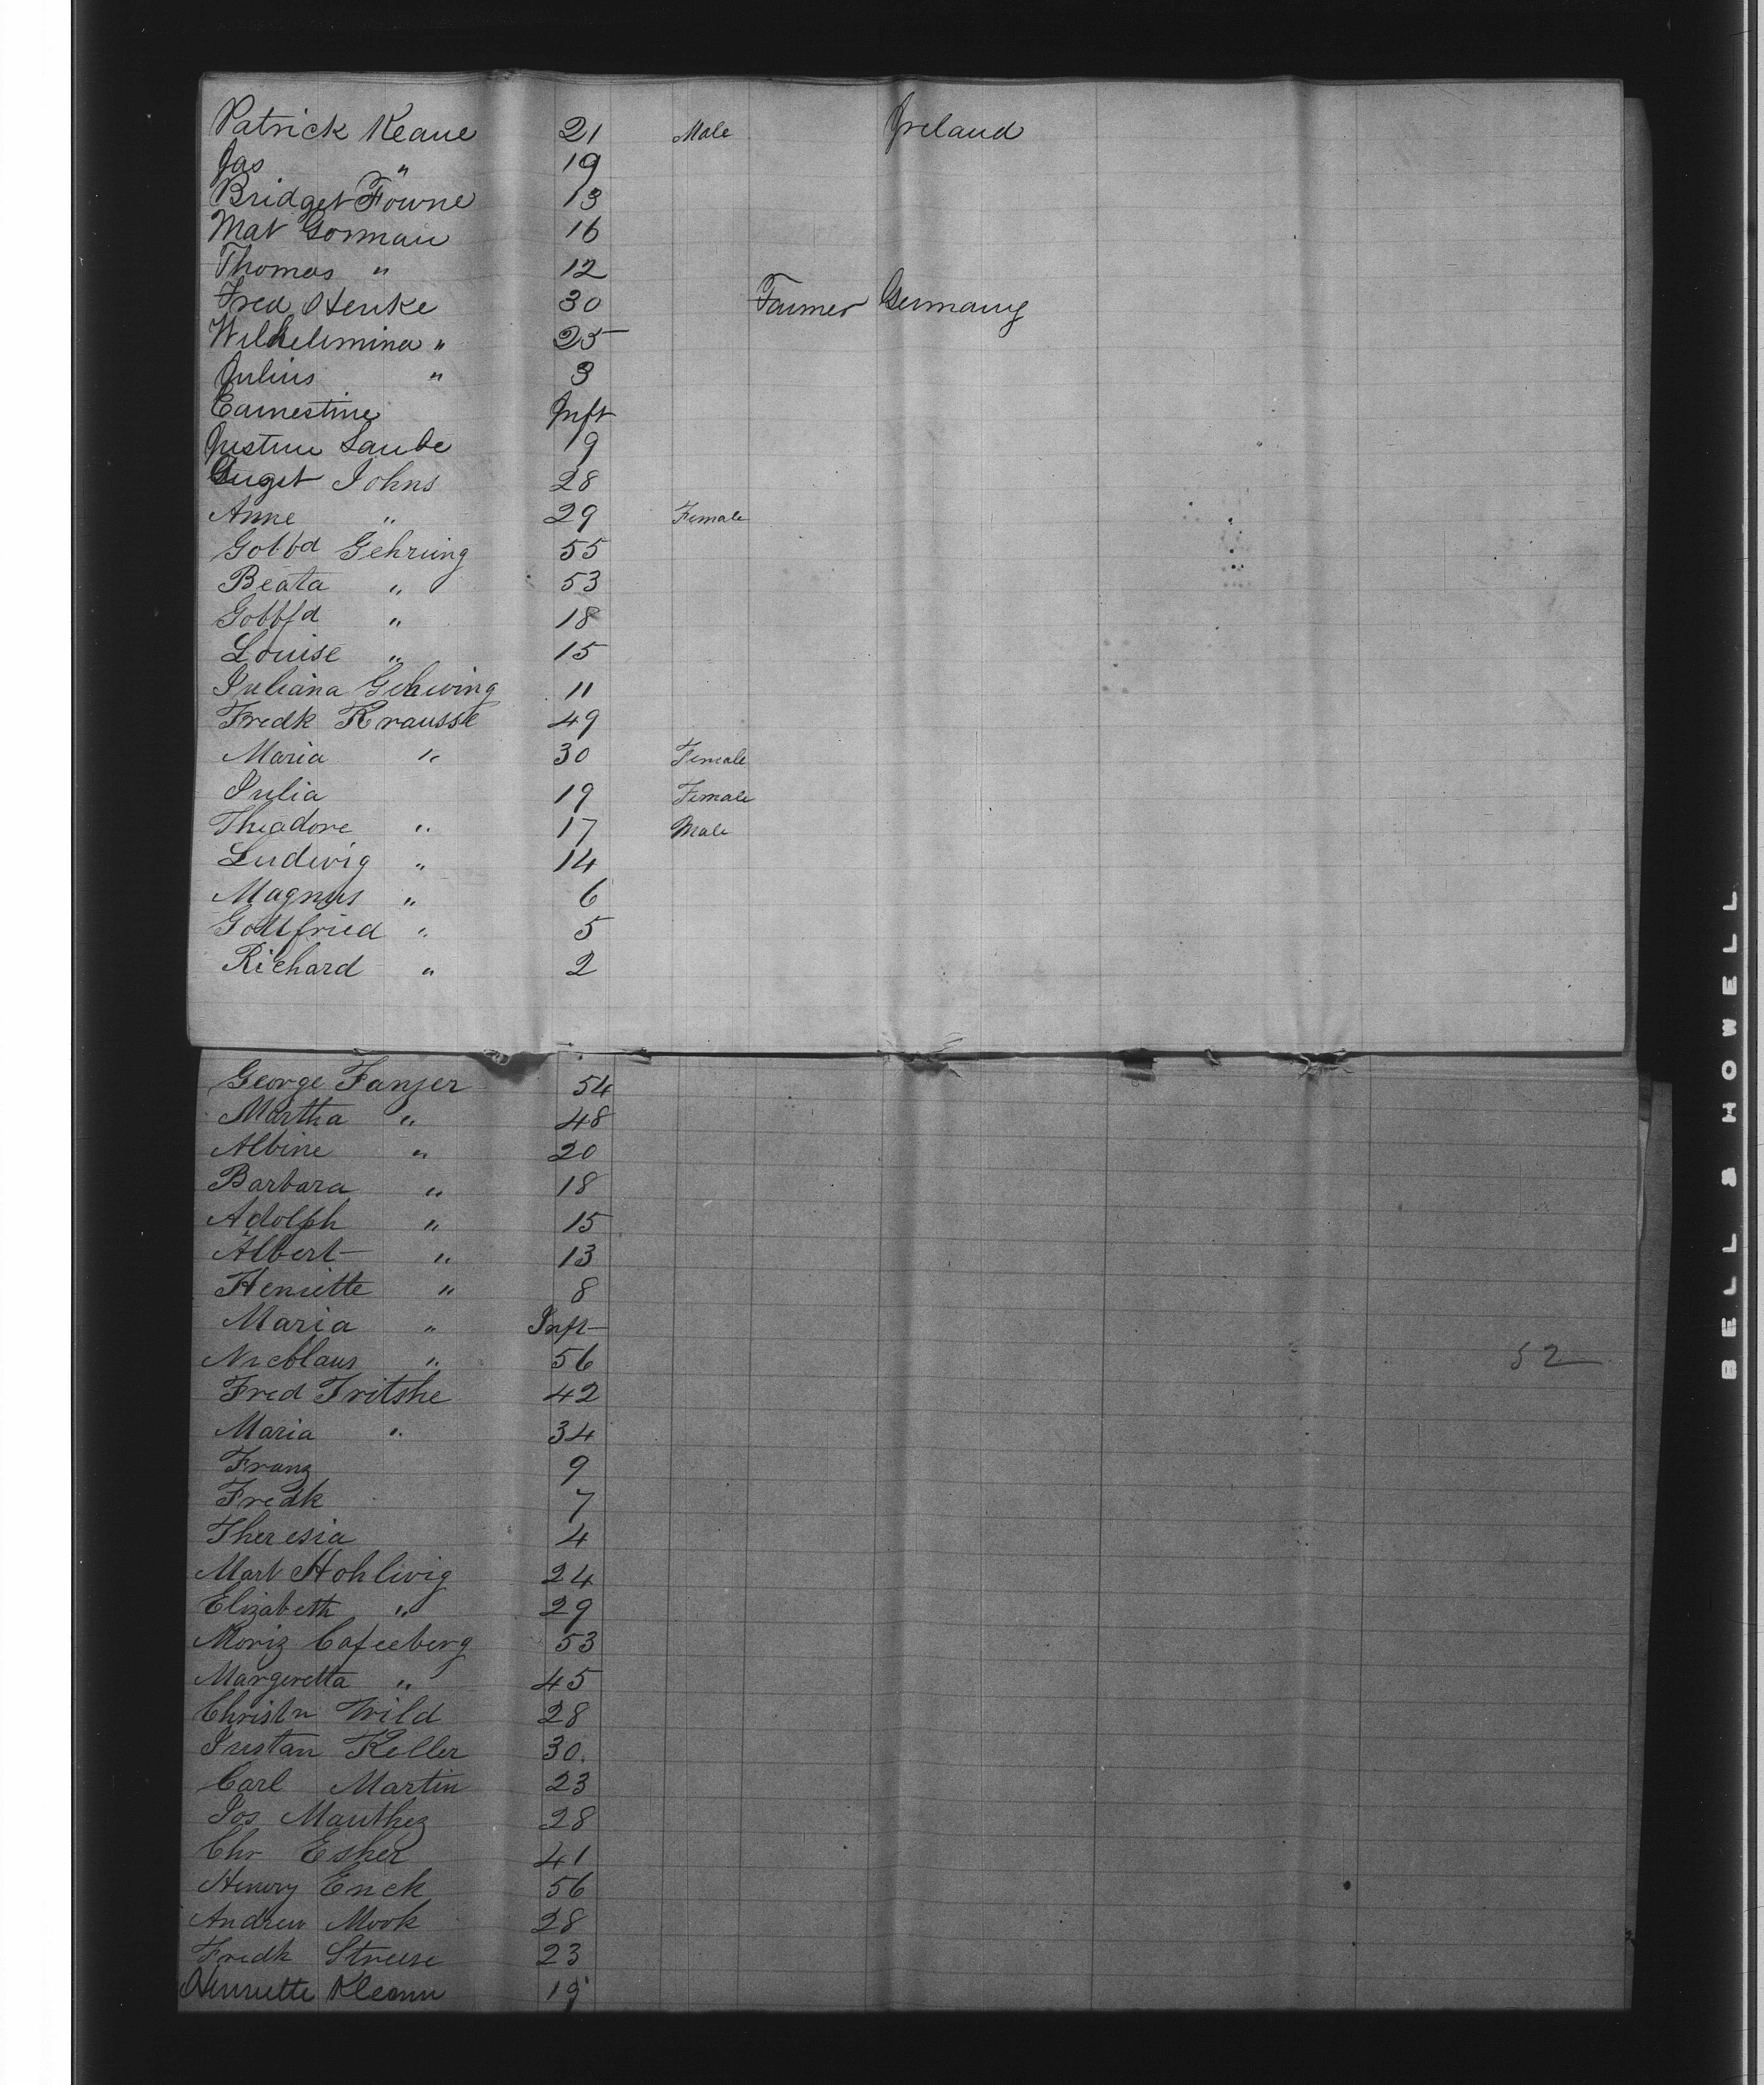 Patrick Keane 21 Male Ireland
Jas " 19
Bridget Fowne 13
Mat Gorman 16
Thomas " 12
Fred Henke 30 Farmer Germany
Wilhelmina " 25
Julius " 3
Earnestine Inft
Justine Laube 19
August Johns 28
Anne " 29 Female
Gotfd Gehring 55
Beata " 53
Gottfd " 18
Louise " 15
Juliana Gehring 11
Fredk Krausse 49
Maria " 30 Female
Julia 19 Female
Theadore " 17 Male
Ludwig " 14
Magnus " 6
Gottfried " 5
Richard " 2
George Fanzer 54
Martha " 48
Albine " 20
Barbara " 18
Adolph " 15
Albert " 13
Henriette " 8
Maria " Inft
Nicolaus " 56 52
Fred Fritshe 42
Maria " 34
Franz 9
Fredk 7
Theresia 4
Mart Hohlwig 24
Elizabeth " 29
Moriz 53
Margeretta " 45
Christn Wild 28
Keller 30.
Carl Martin 23
Jos Manthez 28
Chr Esher 41
Henry Enck 56
Andrew Mook 28
Fredk Streese 23
Henriette Klemm 19
BELL & HOWELL